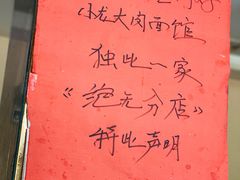 小龙大肉面馆
独此一家
《绝无分店》
特此声明